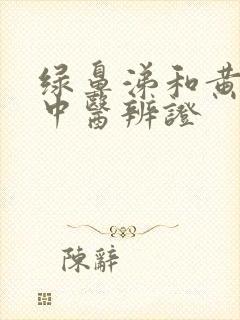 绿鼻涕和黄
中醫辨證
陳辭